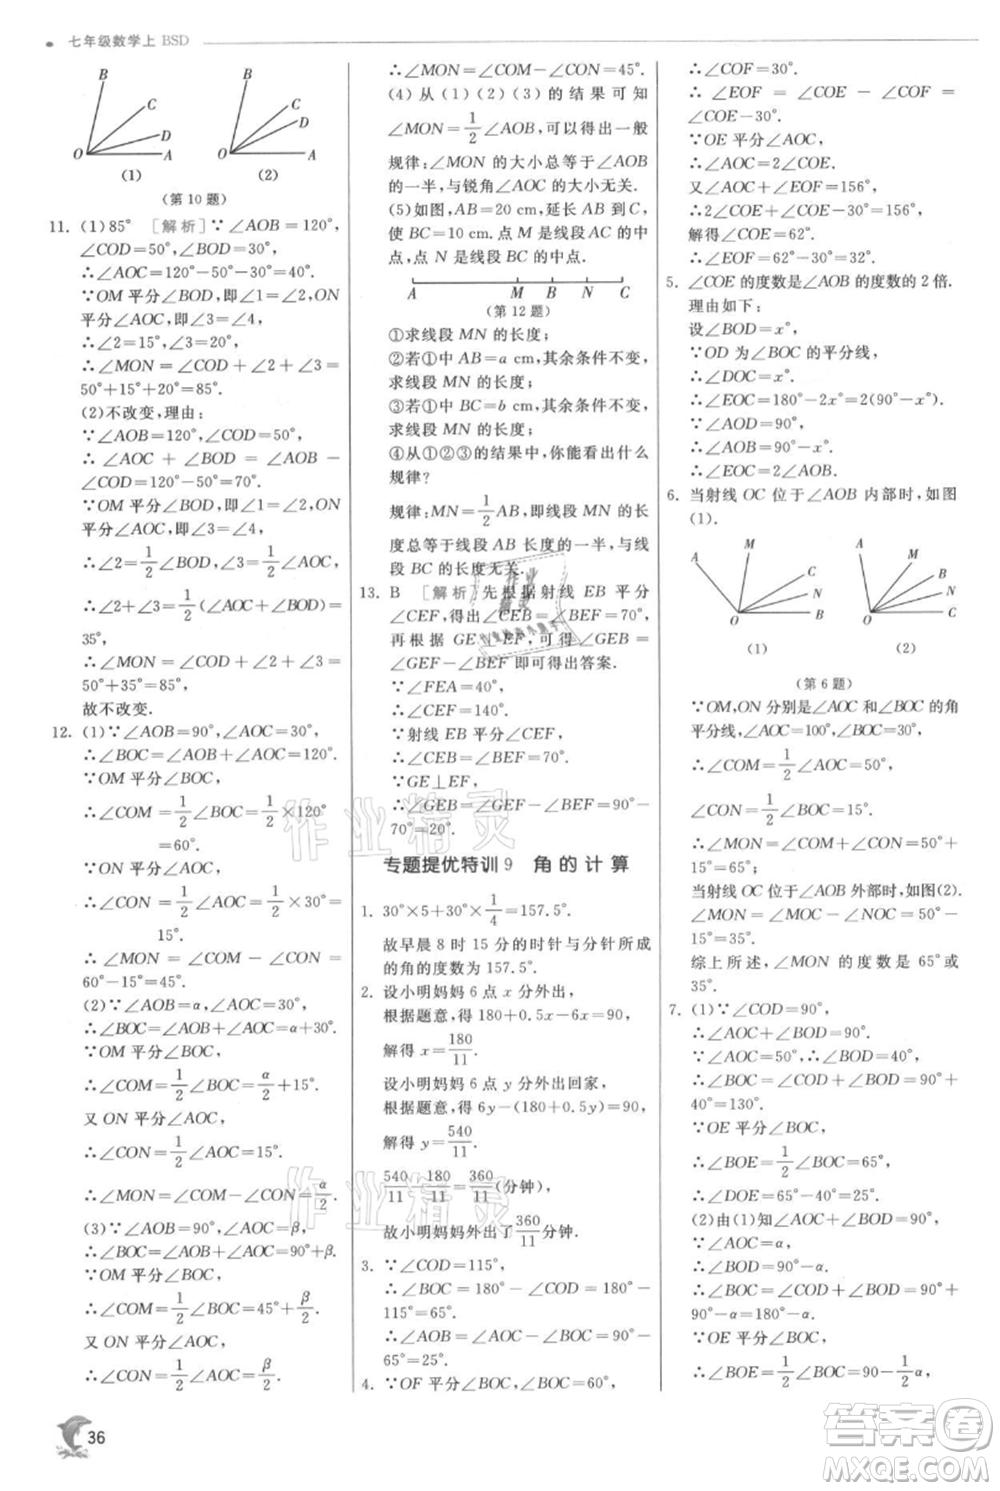 七年级数学上 BSD
B
C
D
O
A
(1)
B
C
D
O
A
(2)
(第 10 题)
11. (1)85° [解析]∵∠AOB=120°,
∠COD=50°,∠BOD=30°,
∴∠AOC=120°-50°-30°=40°.
∵OM 平分∠BOD,即∠1=∠2,ON
平分∠AOC,即∠3=∠4,
∴∠2=15°,∠3=20°,
∴∠MON=∠COD+∠2+∠3=
50°+15°+20°=85°.
(2)不改变,理由:
∵∠AOB=120°,∠COD=50°,
∴∠AOC+∠BOD=∠AOB-
∠COD=120°-50°=70°.
∵OM 平分∠BOD,即∠1=∠2,ON
平分∠AOC,即∠3=∠4,
∴∠2=1/2∠BOD,∠3=1/2∠AOC,
∴∠2+∠3=1/2(∠AOC+∠BOD)=
35°,
∴∠MON=∠COD+∠2+∠3=
50°+35°=85°.
故不改变.
12. (1)∵∠AOB=90°,∠AOC=30°,
∴∠BOC=∠AOB+∠AOC=120°.
∵OM 平分∠BOC,
∴∠COM=1/2∠BOC=1/2×120°
=60°.
∴∠CON=1/2∠AOC=1/2×30°=
15°.
∴∠MON=∠COM-∠CON=
60°-15°=45°.
(2)∵∠AOB=α,∠AOC=30°,
∴∠BOC=∠AOB+∠AOC=α+30°.
∵OM 平分∠BOC,
∴∠COM=1/2∠BOC=α/2+15°.
又 ON 平分∠AOC,
∴∠CON=1/2∠AOC=15°.
∴∠MON=∠COM-∠CON=α/2.
(3)∵∠AOB=90°,∠AOC=β,
∴∠BOC=∠AOB+∠AOC=90°+β.
∵OM 平分∠BOC,
∴∠COM=1/2∠BOC=45°+β/2.
又 ON 平分∠AOC,
∴∠CON=1/2∠AOC=β/2.
∴∠MON=∠COM-∠CON=45°.
(4)从(1)(2)(3)的结果可知
∠MON=1/2∠AOB,可以得出一般
规律:∠MON 的大小总等于∠AOB
的一半,与锐角∠AOC 的大小无关.
(5)如图,AB=20 cm,延长 AB 到 C,
使 BC=10 cm. 点 M 是线段AC 的中
点,点 N 是线段 BC 的中点.
A M B N C
(第 12 题)
①求线段 MN 的长度;
②若①中 AB=a cm,其余条件不变,
求线段 MN 的长度;
③若①中 BC=b cm,其余条件不变,
求线段 MN 的长度;
④从①②③的结果中,你能看出什么
规律?
规律:MN=1/2AB,即线段 MN 的长
度总等于线段 AB 的一半,与线段
BC 的长度无关.
13. B [解析]先根据射线 EB 平分
∠CEF,得出∠CEB=∠BEF=70°,
再根据 GE⊥EF,可得∠GEB=
∠GEF-∠BEF,可得出答案.
∵∠FEA=40°,
∴∠CEF=140°.
∵射线 EB 平分∠CEF,
∴∠CEB=∠BEF=70°.
∵GE⊥EF,
∴∠GEB=∠GEF-∠BEF=90°-
70°=20°.
专题提优特训 9 角的计算
1. 30°×5+30°×1/4=157.5°.
故早晨 8 时 15 分的时针与分针所成
的角的度数为 157.5°.
2. 设小明妈妈 6 点 x 分外出,
根据题意,得 180+0.5x-6x=90,
解得 x=180/11.
设小明妈妈 6 点 y 分外出回家,
根据题意,得 6y-(180+0.5y)=90,
解得 y=540/11.
540/11-180/11=360/11(分钟),
故小明妈妈外出了360/11分钟.
3. ∵∠COD=115°,
∴∠BOC=180°-∠COD=180°-
115°=65°,
∴∠AOB=∠AOC-∠BOC=90°-
65°=25°.
4. ∵OF 平分∠BOC,∠BOC=60°,
∴∠COF=30°.
∴∠EOF=∠COE-∠COF=
∠COE-30°.
∵OE 平分∠AOC,
∴∠AOC=2∠COE.
又∠AOC+∠EOF=156°,
∴2∠COE+∠COE-30°=156°,
解得∠COE=62°.
∴∠EOF=62°-30°=32°.
5. ∠COE 的度数为∠AOB 的 2 倍.
理由如下:
设∠BOD=x°,
∵OD 为∠BOC 的平分线,
∴∠DOC=x°.
∴∠EOC=180°-2x°=2(90°-x°).
∵∠AOD=90°,
∴∠AOB=90°-x°.
∴∠EOC=2∠AOB.
6. 当射线 OC 位于∠AOB 内部时,如图
(1).
A
M
C
N
B
O
(1)
A
M
B
N
C
O
(2)
(第 6 题)
∵OM,ON 分别是∠AOC 和∠BOC 的角
平分线,∠AOC=100°,∠BOC=30°,
∴∠COM=1/2∠AOC=50°,
∠CON=1/2∠BOC=15°.
∴∠MON=∠COM+∠CON=50°+
15°=65°;
当射线 OC 位于∠AOB 外部时,如图(2).
∠MON=∠MOC-∠NOC=50°-
15°=35°.
综上所述,∠MON 的度数为 65°或
35°.
7. (1)∵∠COD=90°,
∴∠AOC+∠BOD=90°.
∴∠BOD=40°,
∴∠BOC=∠COD+∠BOD=90°+
40°=130°.
∵OE 平分∠BOC,
∴∠BOE=1/2∠BOC=65°,
∴∠DOE=65°-40°=25°.
(2)由(1)知∠AOC+∠BOD=90°,
∵∠AOC=α,
∴∠BOD=90°-α.
∴∠BOC=∠COD+∠BOD=90°+
90°-α=180°-α.
∵OE 平分∠BOC,
∴∠BOE=1/2∠BOC=90-1/2α.
36
作业精灵
作业精灵
答案卷
MXQE.COM